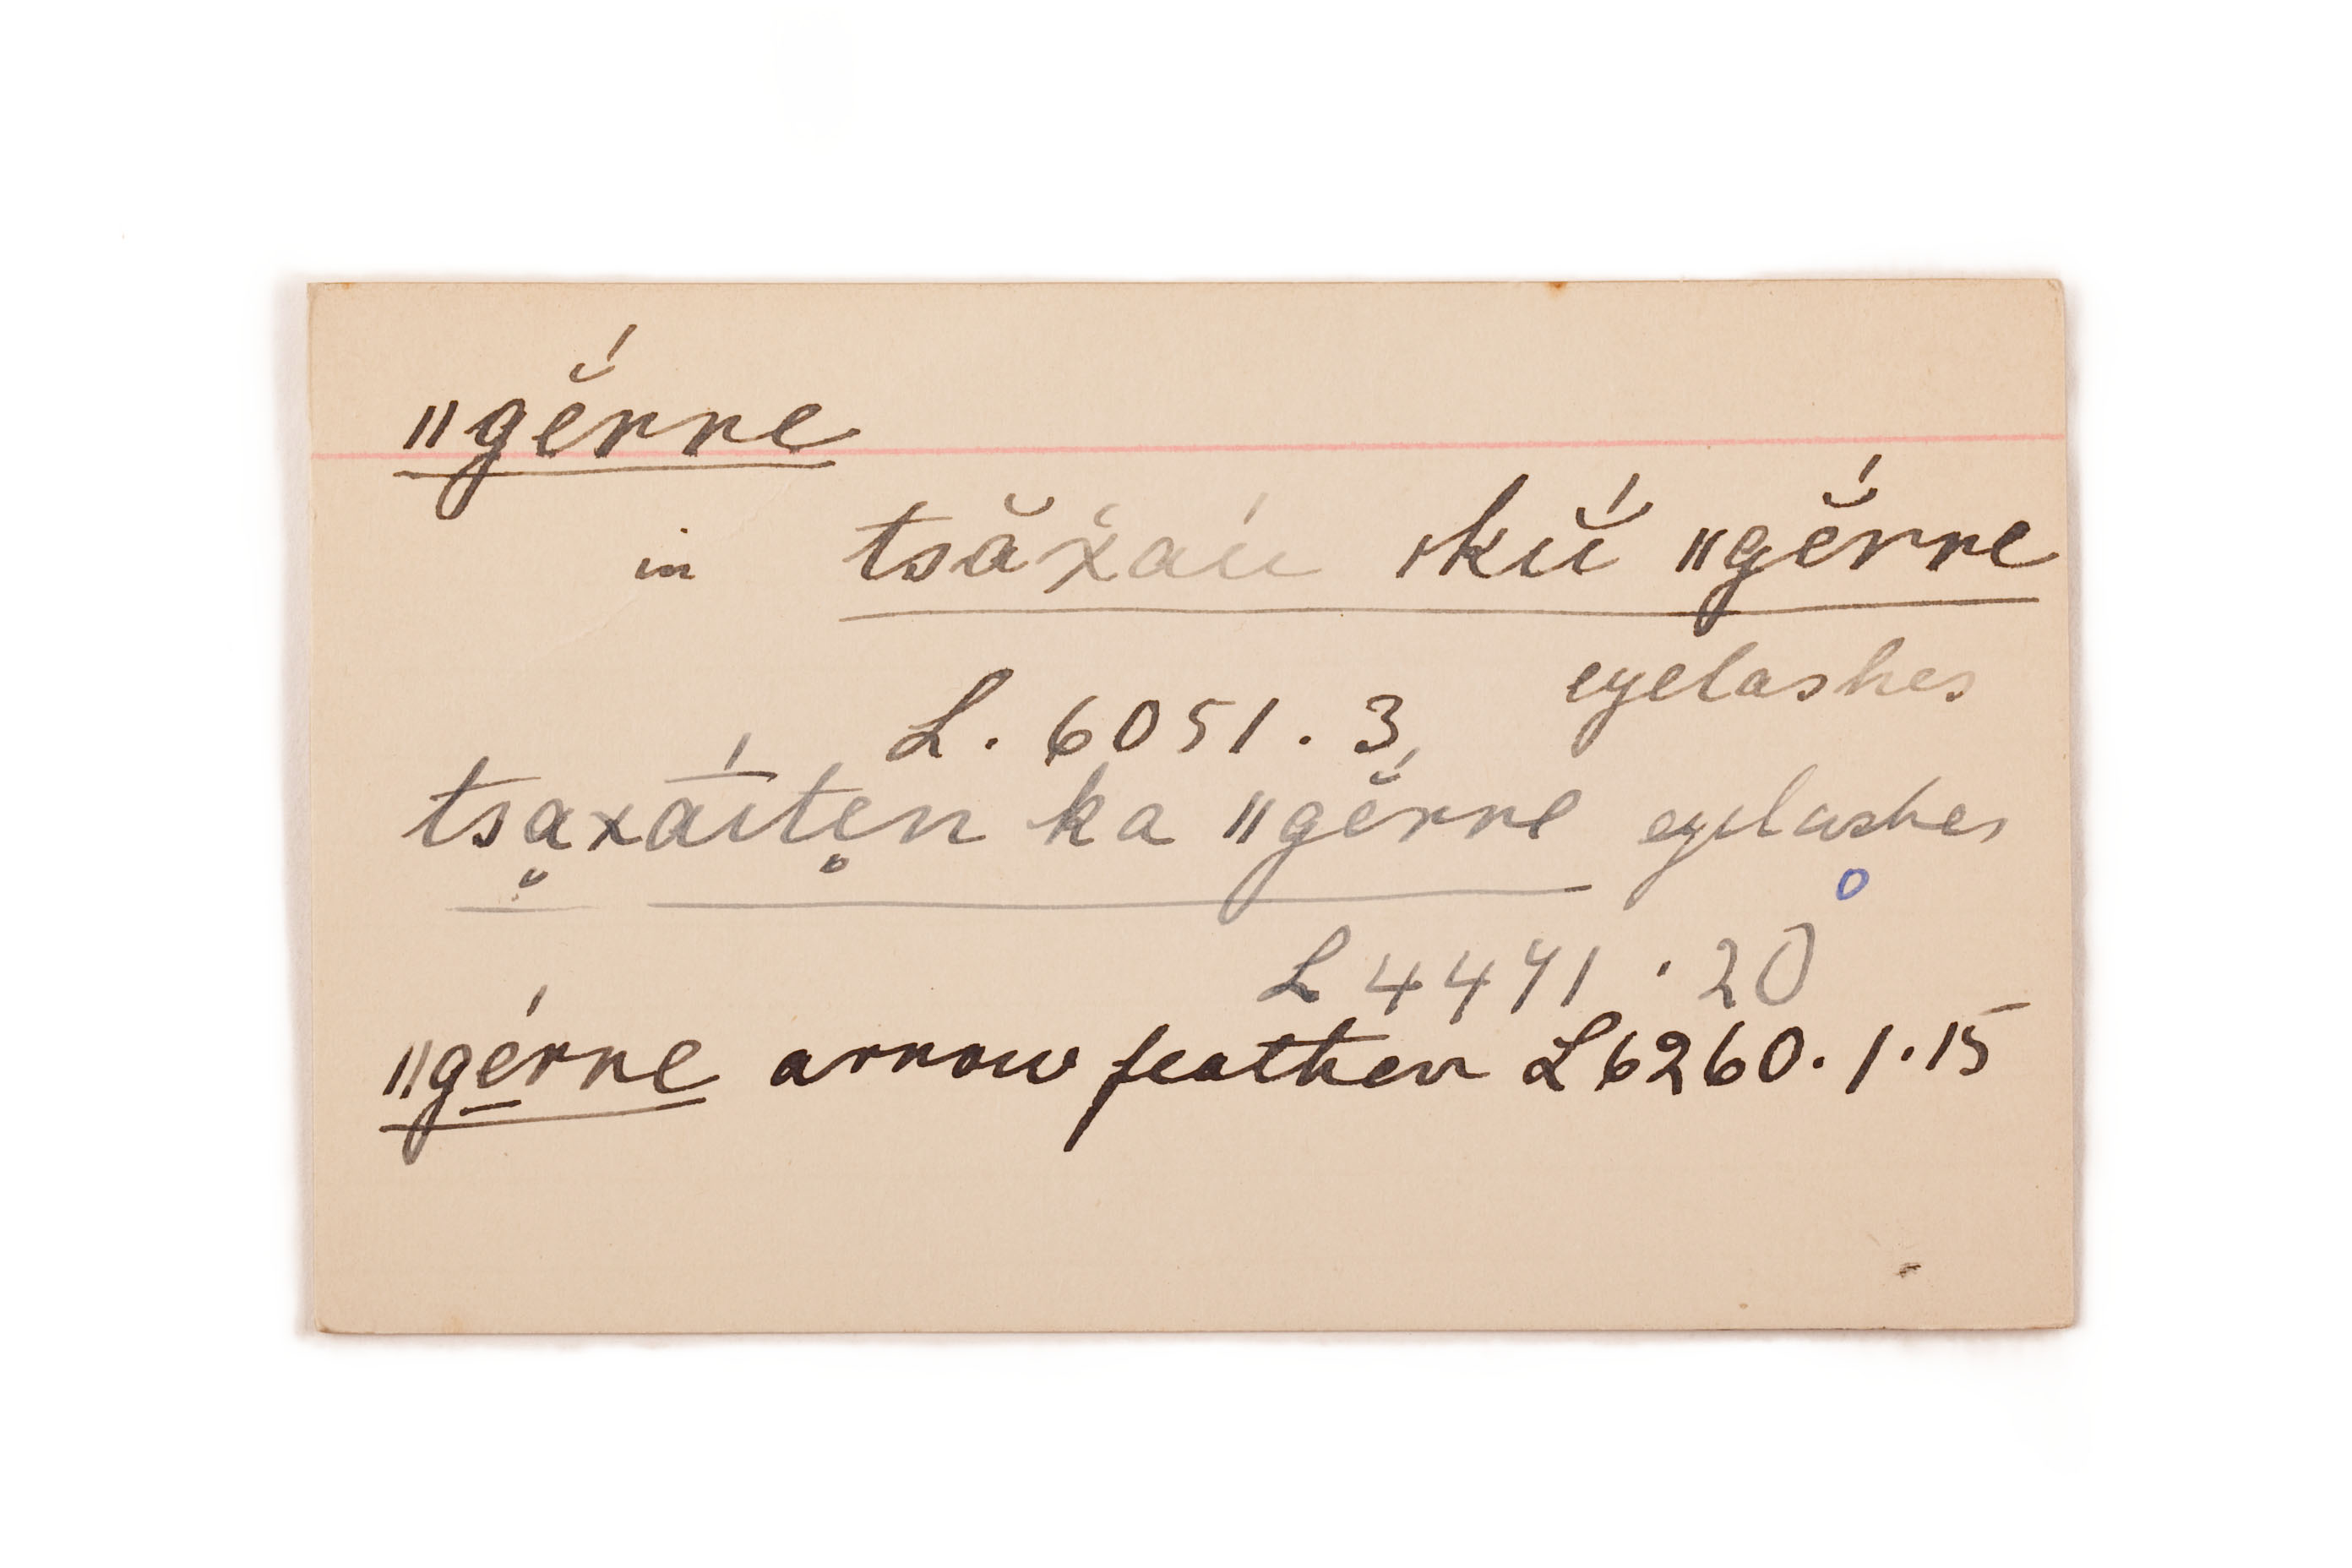 ǁgĕ́rre
in tsăx̆aú ǀkŭ́ ǁgĕ́rre
eyelashes
L. 6051. 3
tsa̤xā́ıtẹn ka ǁgĕ́rre eyelashes
L 4471 . 20
ǁgé̱rre arrow feather L6260. 1. 15